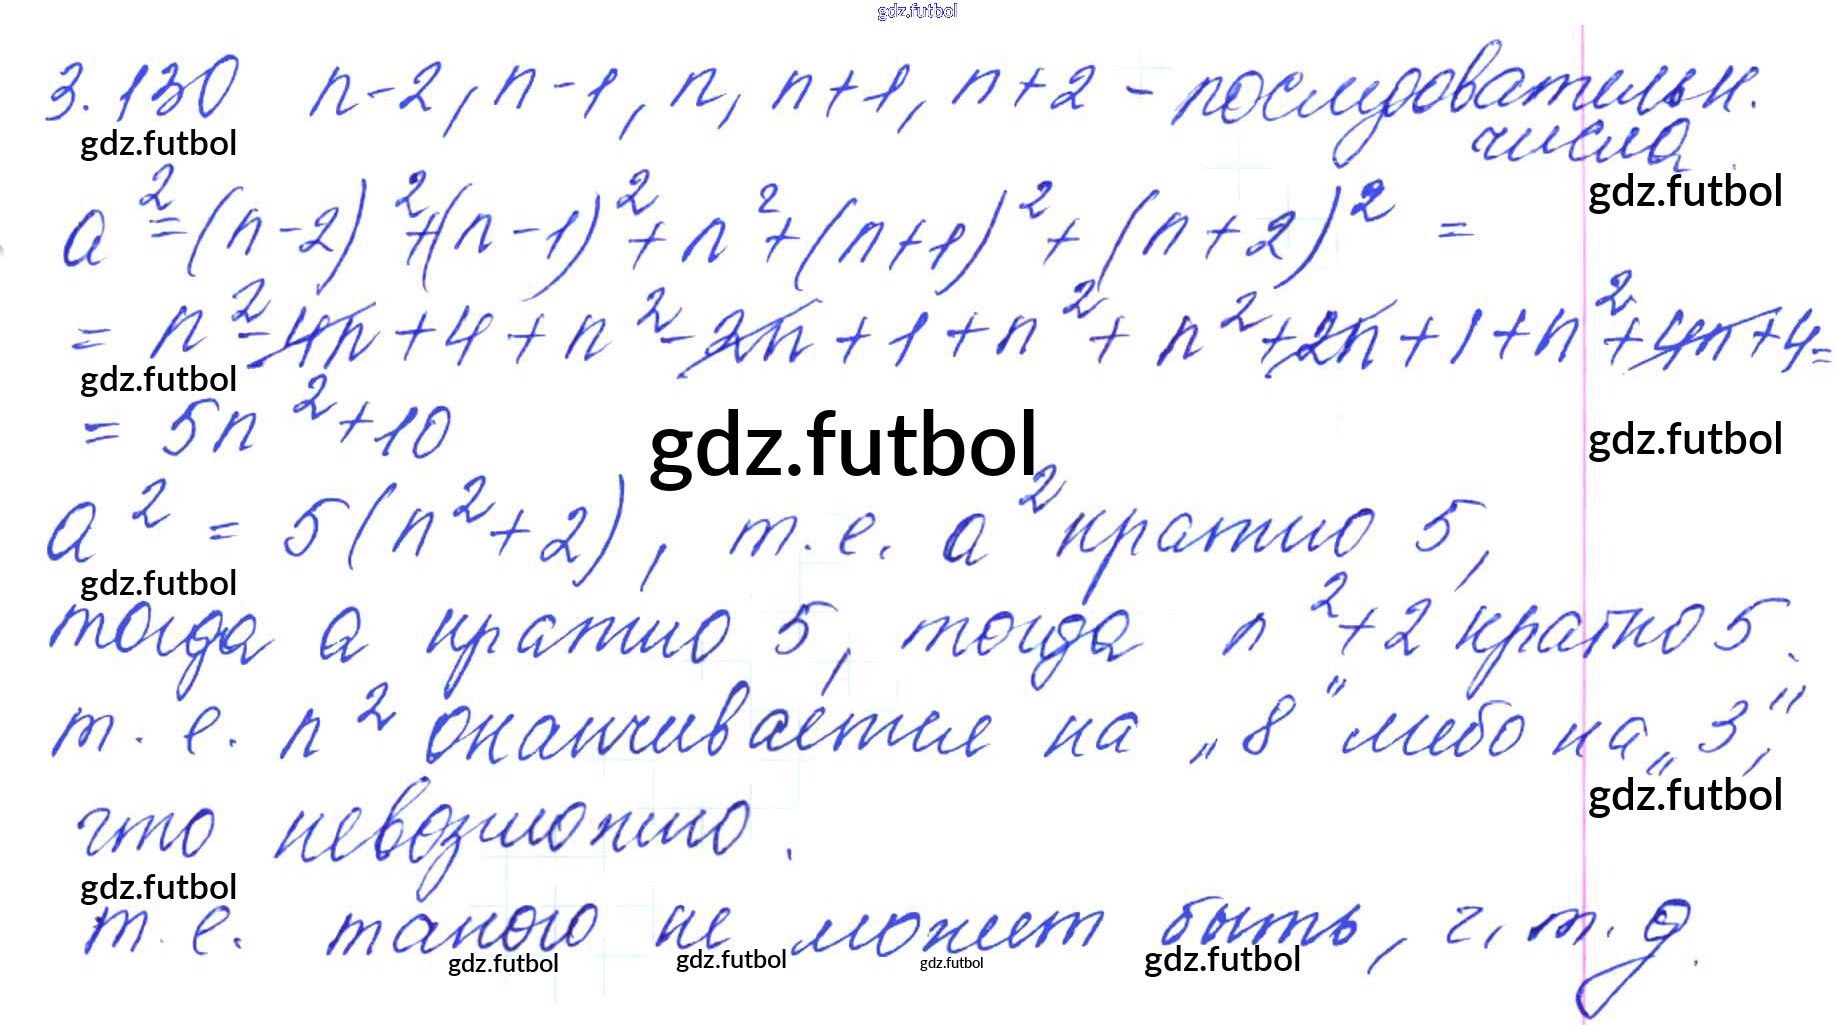 gdz.futbol
3.130 n-2, n-1, n, n+1, n+2 - последовательн.
числа
gdz.futbol
gdz.futbol
a² = (n-2)² + (n-1)² + n² + (n+1)² + (n+2)² =
= n² - 4n + 4 + n² - 2n + 1 + n² + n² + 2n + 1 + n² + 4n + 4 =
gdz.futbol
= 5n² + 10
gdz.futbol
gdz.futbol
a² = 5(n² + 2), т.е. a² кратно 5,
gdz.futbol
тогда a кратно 5, тогда n² + 2 кратно 5.
т.е. n² оканчивается на „8" либо на „3",
gdz.futbol
что невозможно.
gdz.futbol
т.е. такого не может быть, ч.т.д.
gdz.futbol gdz.futbol gdz.futbol gdz.futbol